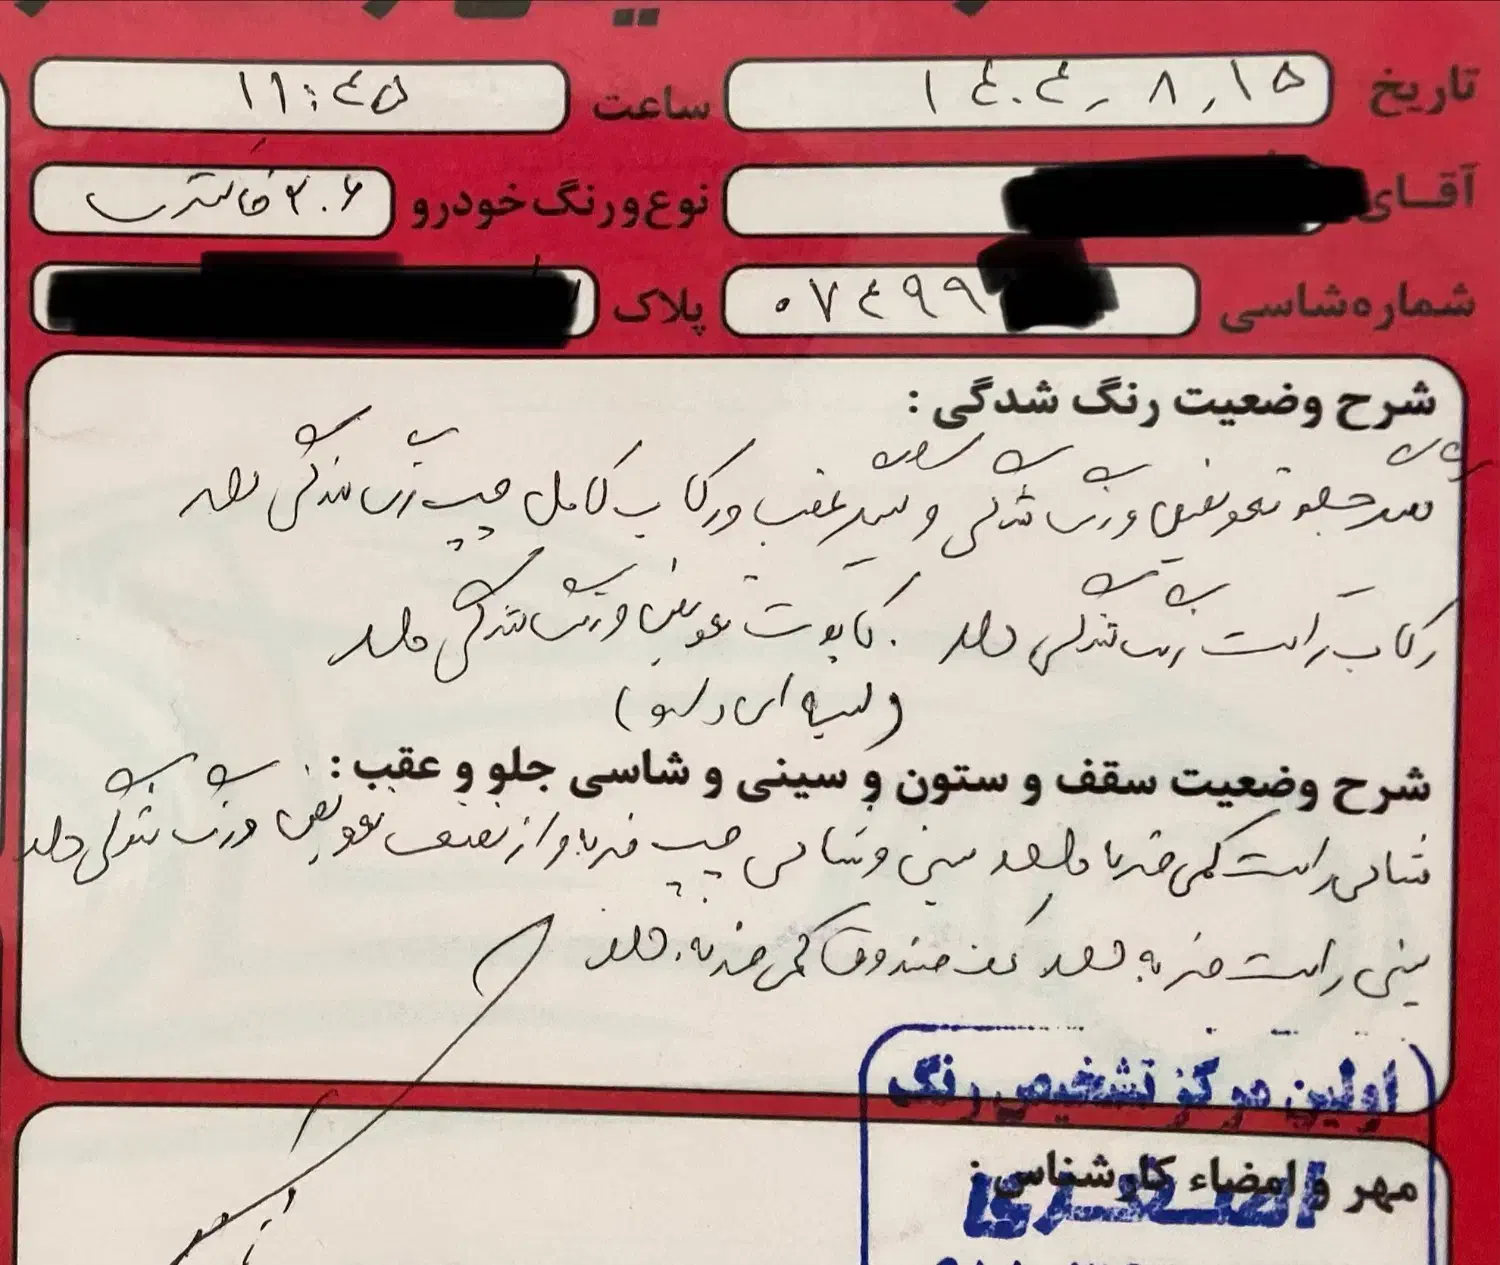 تاریخ ۱۴۰۴,۸,۱۵
ساعت ۱۱:۴۵
آقای
نوع و رنگ خودرو ۲۰۶ خاکستری
شماره شاسی ۰۷۴۹۹
پلاک
شرح وضعیت رنگ شدگی :
جلو تعویض و رنگ شدگی و عقب و رکاب کامل چپ رنگ شدگی دارد
رکاب راست رنگ شدگی دارد . کاپوت تعویض و رنگ شدگی دارد
(لبه ای)
شرح وضعیت سقف و ستون و سینی و شاسی جلو و عقب :
شاسی راست کمی ضربه دارد سینی و شاسی چپ ضربه و از نصف تعویض و رنگ شدگی دارد
سینی راست ضربه دارد کف صندوق کمی ضربه دارد
اولین مرکز تشخیص رنگ
مهر و امضاء کارشناس :